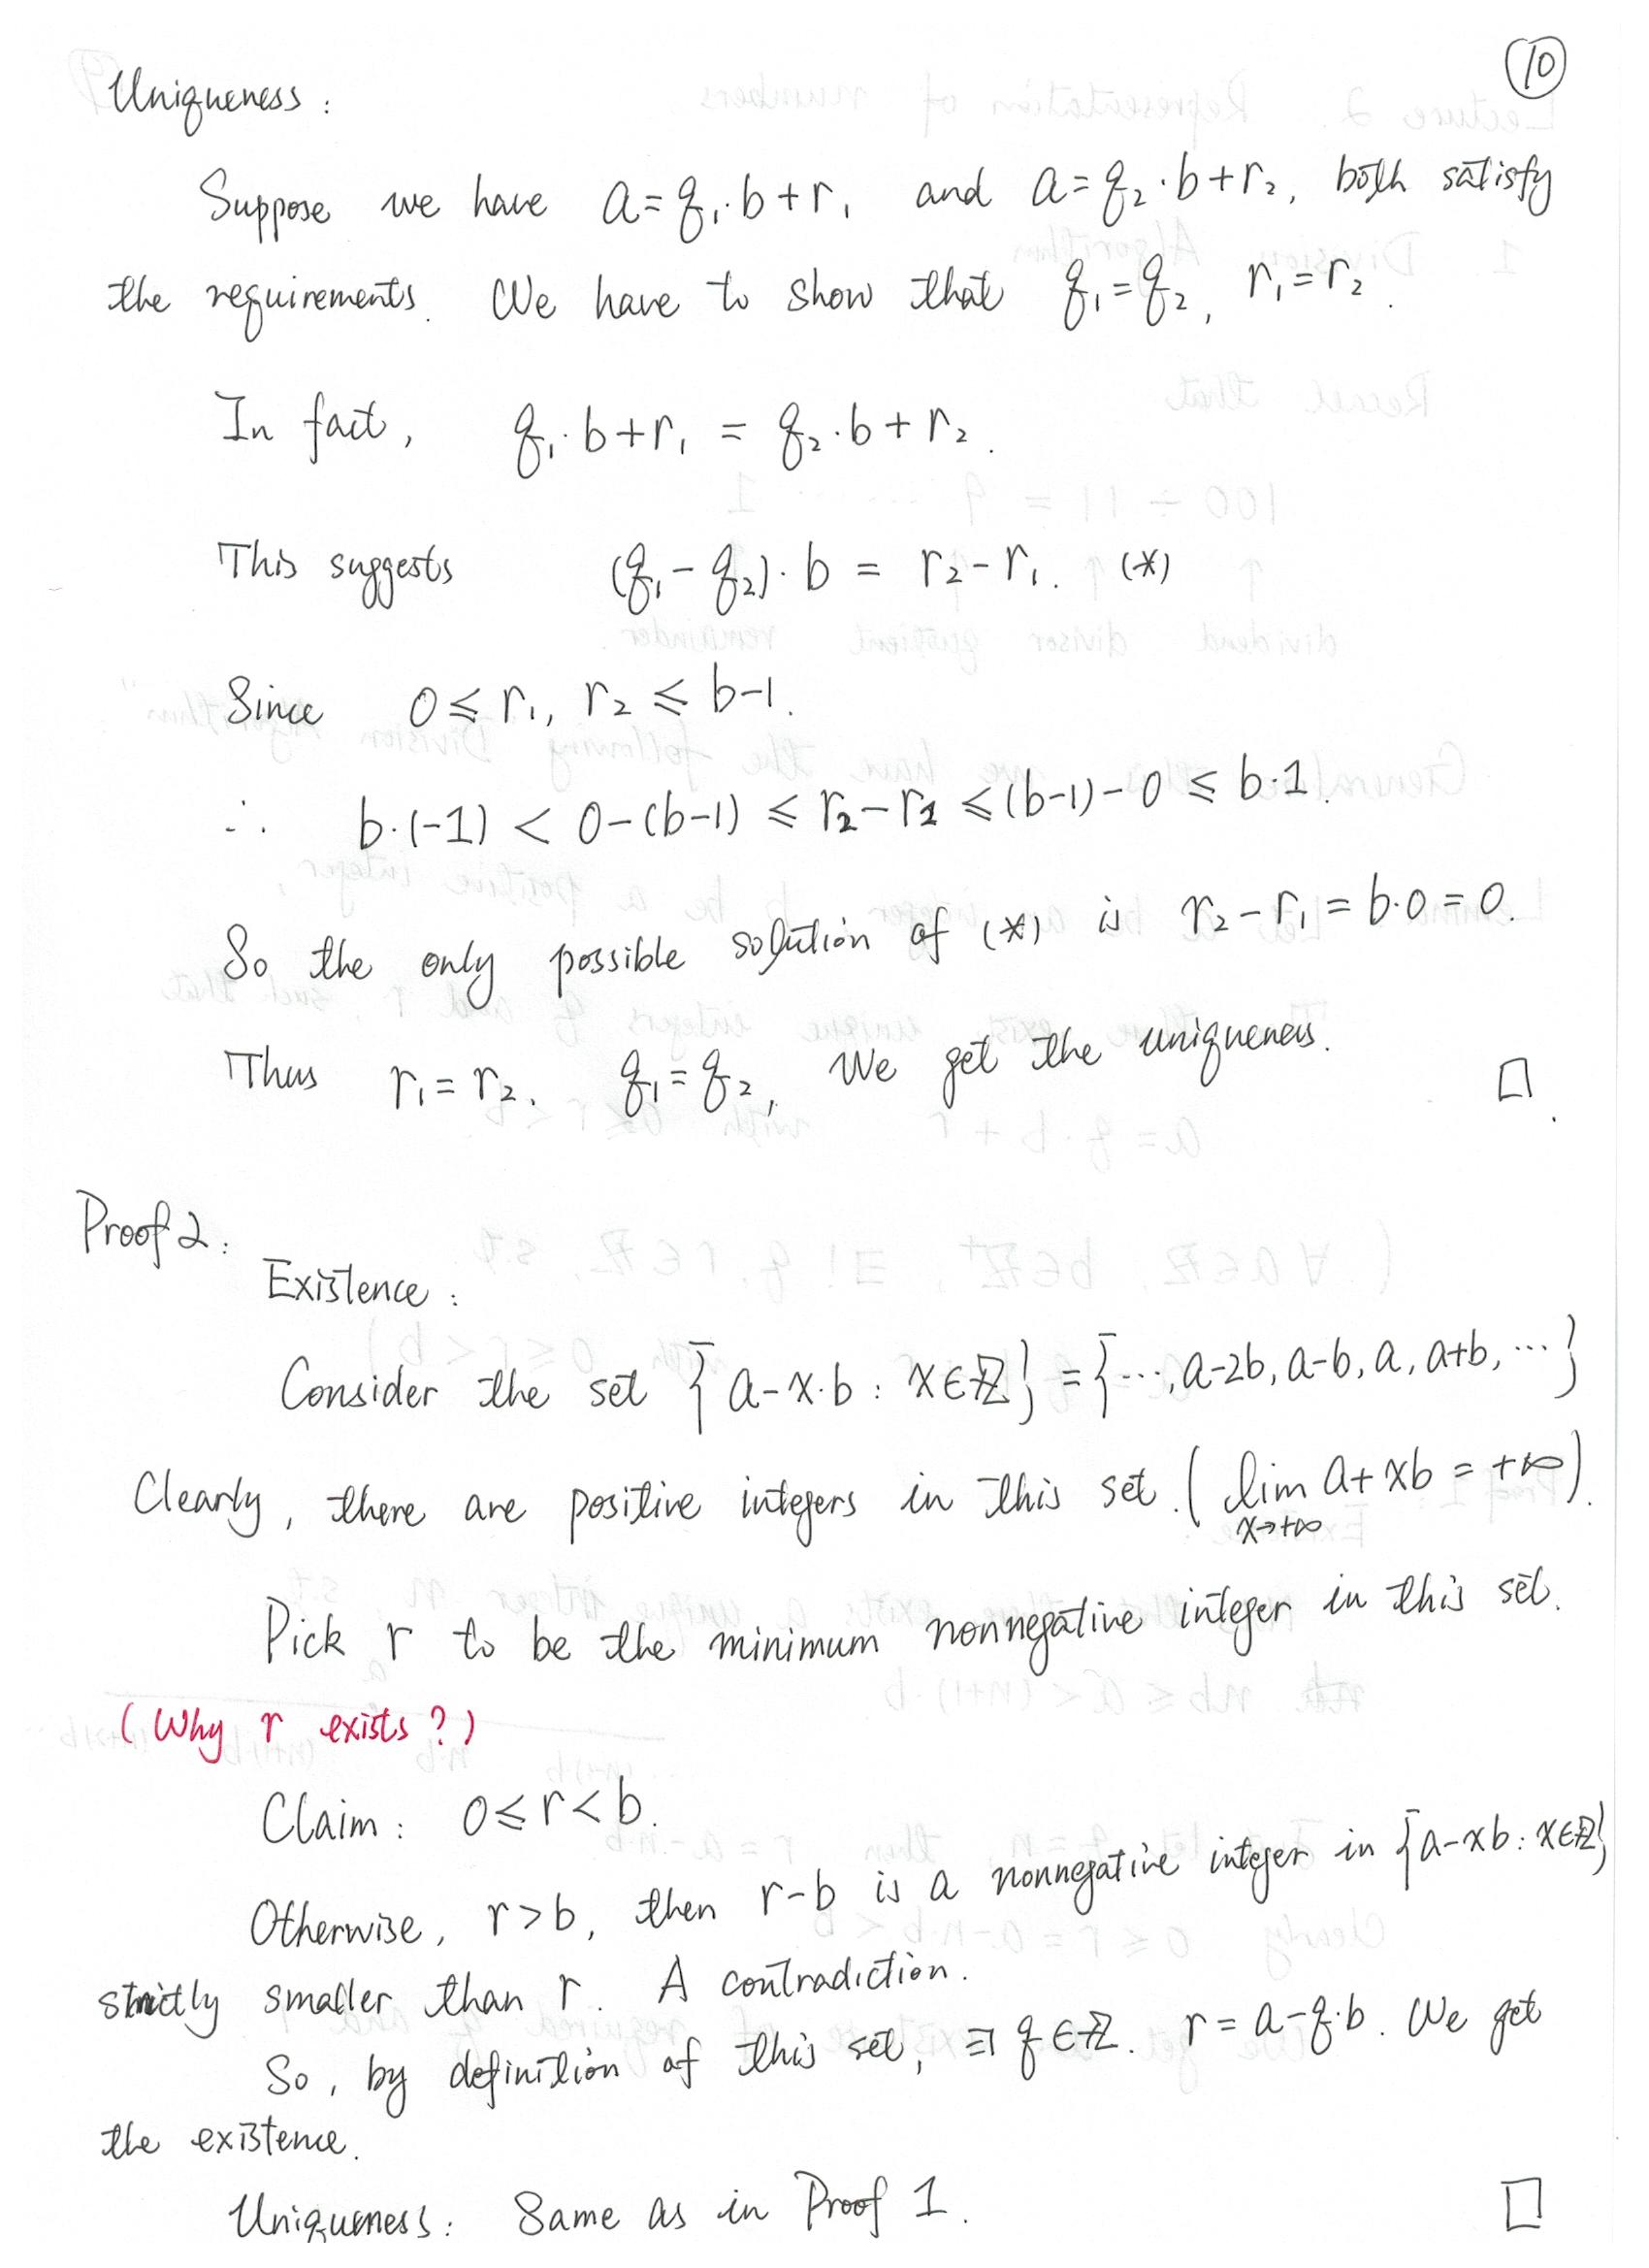 10
Uniqueness:
Suppose we have a=q₁·b+r₁ and a=q₂·b+r₂, both satisfy
the requirements. We have to show that q₁=q₂, r₁=r₂.
In fact, q₁·b+r₁ = q₂·b+r₂.
This suggests (q₁-q₂)·b = r₂-r₁. (*)
Since 0≤r₁, r₂≤b-1.
∴ b·(-1) < 0-(b-1) ≤ r₂-r₁ ≤(b-1)-0 ≤ b·1.
So the only possible solution of (*) is r₂-r₁=b·0=0.
Thus r₁=r₂. q₁=q₂, We get the uniqueness. □.
Proof 2:
Existence:
Consider the set {a-x·b: x∈ℤ} = {⋯, a-2b, a-b, a, a+b, ⋯}
Clearly, there are positive integers in this set. (lim a+xb = +∞).
x→+∞
Pick r to be the minimum nonnegative integer in this set.
(Why r exists?)
Claim: 0≤r<b.
Otherwise, r>b, then r-b is a nonnegative integer in {a-xb: x∈ℤ}
strictly smaller than r. A contradiction.
So, by definition of this set, ∃ q∈ℤ. r=a-q·b. We get
the existence.
Uniqueness: Same as in Proof 1. □